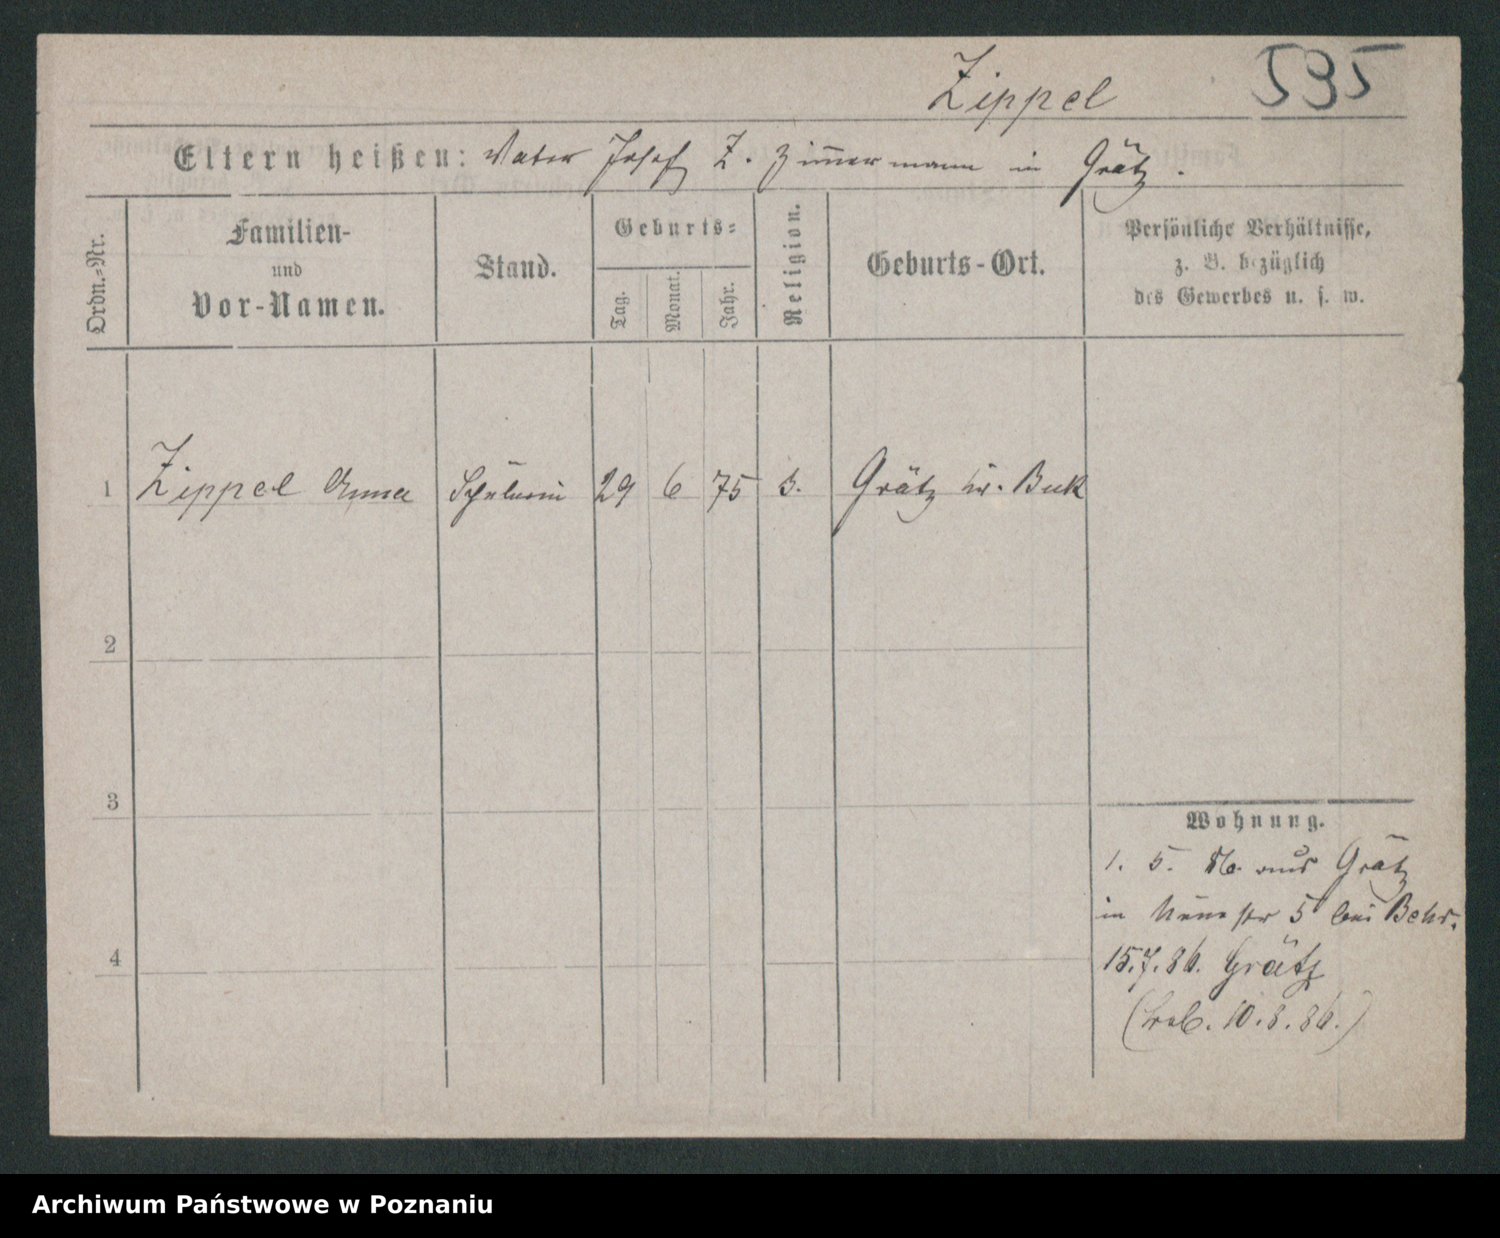 Zippel 595
Eltern heißen: Vater Josef Z. Zimmermann in Grätz.
Ordn.-Nr.
Familien-
und
Vor-Namen.
Stand.
Geburts-
Tag.
Monat.
Jahr.
Religion.
Geburts-Ort.
Persönliche Verhältnisse,
z. B. bezüglich
des Gewerbes u. s. w.
1 Zippel Anna Schülerin 29 6 75 Grätz Kr. Buk
2
3
4
Wohnung.
1. 5. 86. aus Grätz
in 5 bei Behr.
15.7.86. Grätz
10.8.86.)
Archiwum Państwowe w Poznaniu